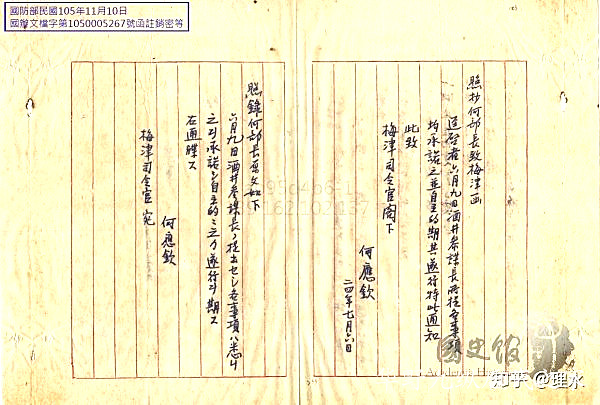 國防部民國105年11月10日
國辦文檔字第1050005267號函註銷密等
照抄何部長致梅津函
逕啓者六月九日酒井參謀長所提各事項
均承諾之並自主的期其遂行特此通知
此致
梅津司令官閣下
何應欽
二四年七月六日
照錄何部長原文如下
六月九日酒井參謀長ノ提出セシ各事項ハ悉ク
之ヲ承諾シ自主的ニ之カ遂行ヲ期ス
右通牒ス
何應欽
梅津司令官 宛
國史館
Academia Historica
知乎 @理水